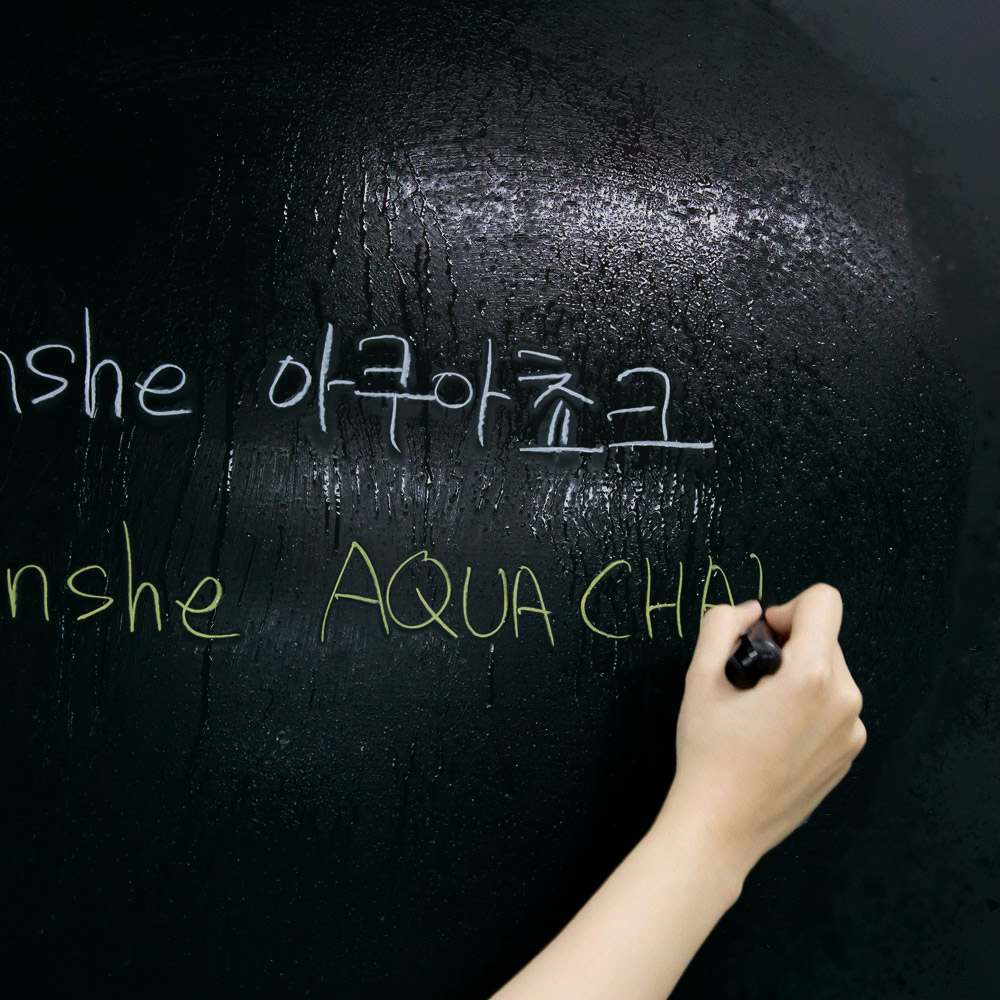 nshe 아쿠아쵸크
nshe AQUA CHA